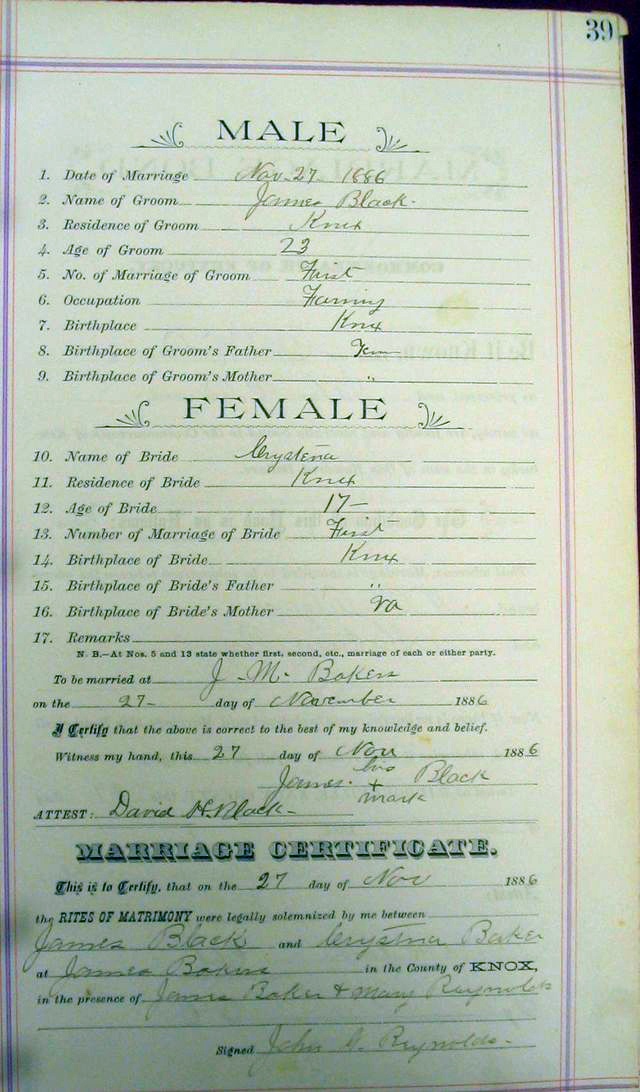 39
MALE
1. Date of Marriage Nov. 27 1886
2. Name of Groom James Black.
3. Residence of Groom Knox
4. Age of Groom 23
5. No. of Marriage of Groom First
6. Occupation Farming
7. Birthplace Knox
8. Birthplace of Groom's Father
9. Birthplace of Groom's Mother "
FEMALE
10. Name of Bride Crystena
11. Residence of Bride Knox
12. Age of Bride 17-
13. Number of Marriage of Bride First
14. Birthplace of Bride Knox
15. Birthplace of Bride's Father "
16. Birthplace of Bride's Mother Va
17. Remarks
N. B.—At Nos. 5 and 13 state whether first, second, etc., marriage of each or either party.
To be married at J. M. Bakers
on the 27- day of November 1886
I Certify that the above is correct to the best of my knowledge and belief.
Witness my hand, this 27 day of Nov 1886
his
James + Black
mark
ATTEST: David H. Black-
MARRIAGE CERTIFICATE.
This is to Certify, that on the 27 day of Nov 1886
the RITES OF MATRIMONY were legally solemnized by me between
James Black and Crystina Baker
at James Bakers in the County of KNOX,
in the presence of James Baker & Mary Reynolds
Signed John Reynolds-